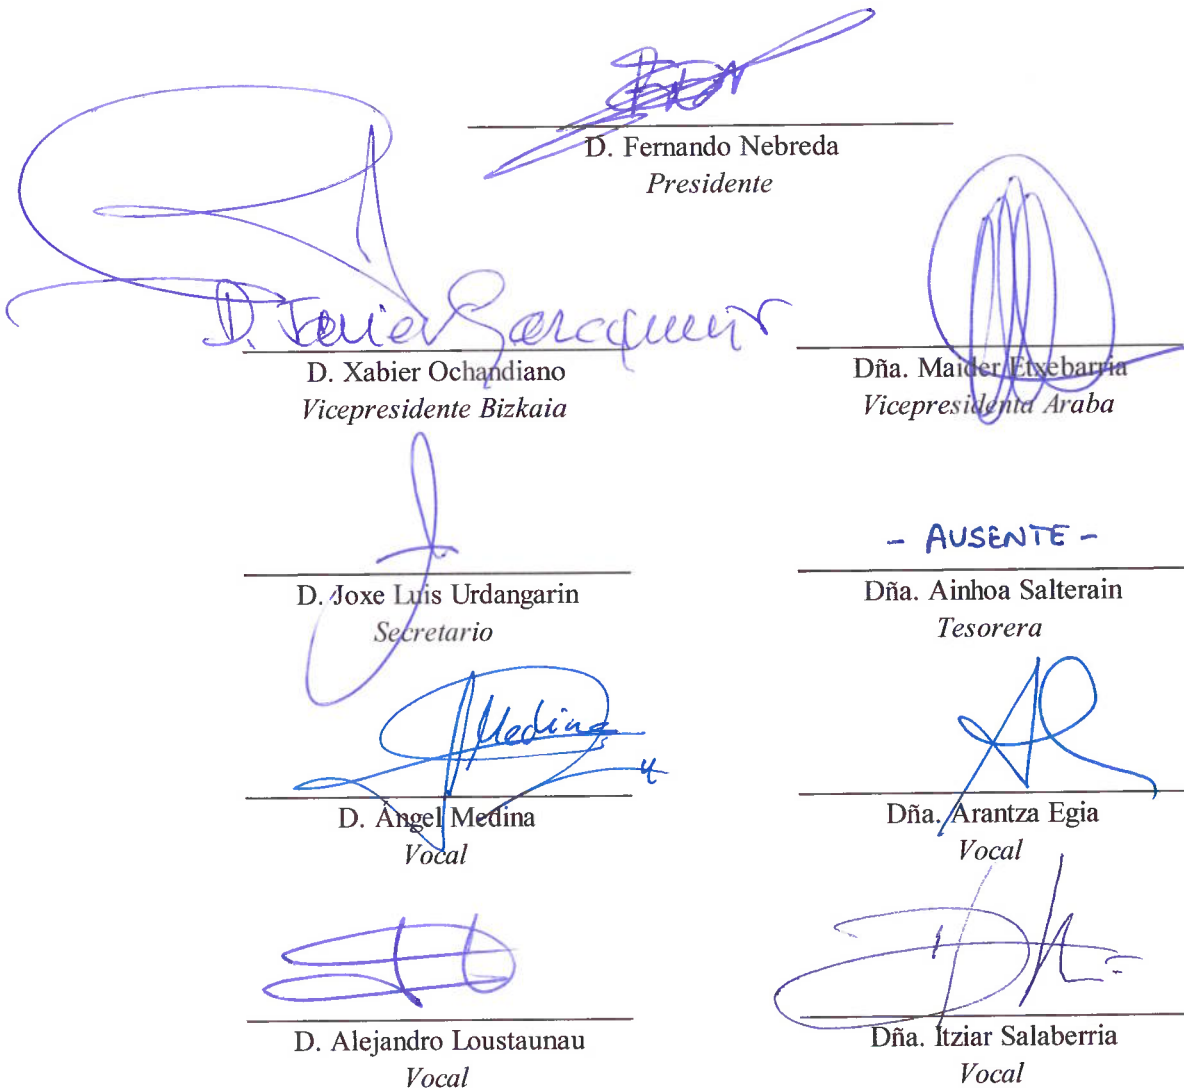 D. Fernando Nebreda
Presidente
D. Javier
D. Xabier Ochandiano
Vicepresidente Bizkaia
Dña. Maider Etxebarria
Vicepresidenta Araba
D. Joxe Luis Urdangarin
Secretario
- AUSENTE -
Dña. Ainhoa Salterain
Tesorera
Medina
D. Ángel Medina
Vocal
Dña. Arantza Egia
Vocal
D. Alejandro Loustaunau
Vocal
Dña. Itziar Salaberria
Vocal